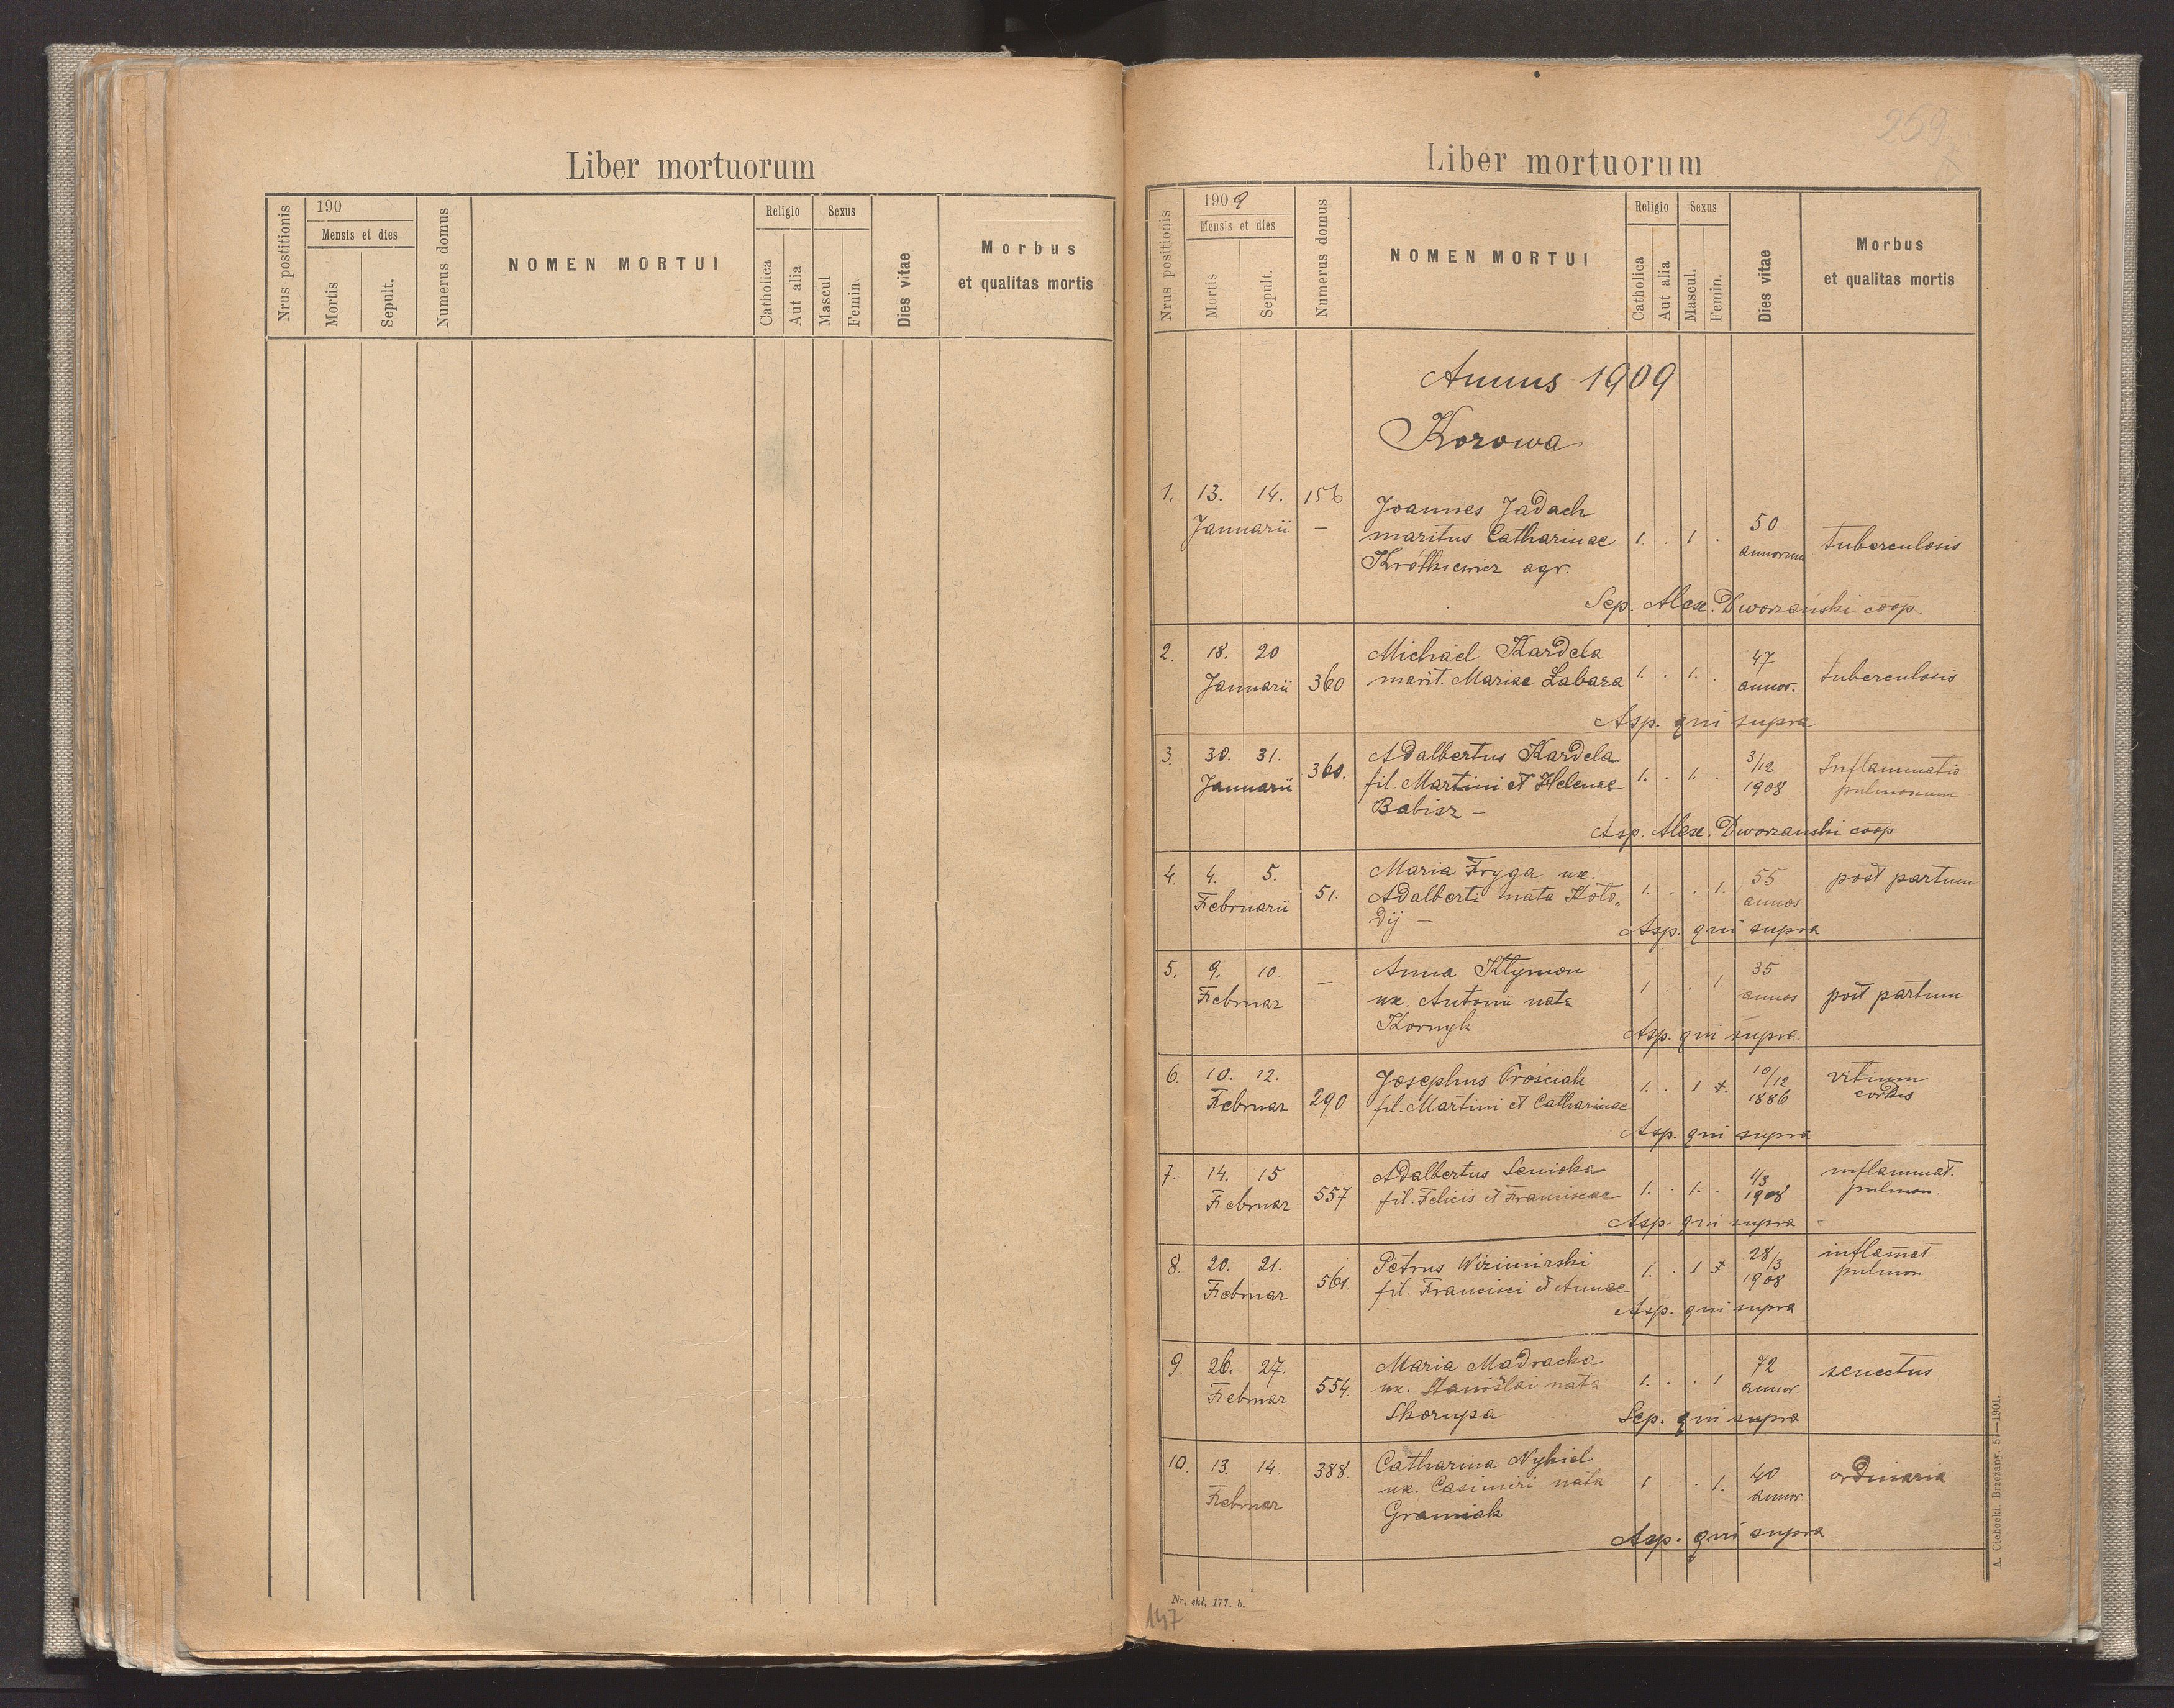 Liber mortuorum
Nrus postitionis
190
Mensis et dies
Mortis
Sepult.
Numerus domus
NOMEN MORTUI
Religio
Catholica
Aut alia
Sexus
Mascul
Femin.
Dies vitae
Morbus
et qualitas mortis
259
Liber mortuorum
Nrus positionis
1909
Mensis et dies
Mortis
Sepult.
Numerus domus
NOMEN MORTUI
Religio
Catholica
Aut alia
Sexus
Mascul.
Femin.
Dies vitae
Morbus
et qualitas mortis
Annus 1909
Korowa
1. 13. 14. 156 Joannes Jadach
Januarii — maritus Catharinae 1. . 1 . 50 annorum tuberculosis
Krótkiewicz agr.
Sep. Alex. Dworzański coop.
2. 18. 20 Michael Kardela 47
Januarii 360 marit. Mariae Łabaza 1. . 1. . annor. tuberculosis
Asp. qui supra
3. 30. 31. 360. Adalbertus Kardela 3/12 Inflammatio
Januarii fil. Martini et Helenae 1. . 1. . 1908 pulmonum
Babisz —
Asp. Alex. Dworzański coop
4. 4. 5. Maria Fryga ux. 55 post partum
Februarii 51. Adalberti nata Koło„ 1. . . 1. annos
dij —
Asp. qui supra
5. 9. 10. — Anna Klymon 35
Februar ux. Antonii nata 1 . . 1. annos post partum
Kornyk
Asp. qui supra
6. 10. 12. Josephus Prościak 1. . 1 +. 10/12 vitium
Februar 290 fil. Martini et Catharinae 1886 cordis
Asp. qui supra
7. 14. 15 Adalbertus 4/3 inflammat.
Februar 557 fil. Felicis et Franciscae 1. . 1. . 1908 pulmon.
Asp. qui supra
8. 20. 21. Petrus Wizimirski 28/3 inflamat
Februar 561. fil. Francisci et Annae 1. . 1 + 1908 pulmon
Asp. qui supra
9. 26. 27. Maria Madracka 72 senectus
Februar 554. ux. Stanislai nata 1. . . 1 annor.
Skorupa
Sep. qui supra
10. 13. 14. 388. Catharina Nykiel 40 ordinaria
Februar ux. Casimiri nata 1 . . 1. annor
Graniak
Asp. qui supra
Nr. skł. 177. b.
147
A. Cichocki. Brzeżany. 57—1901.